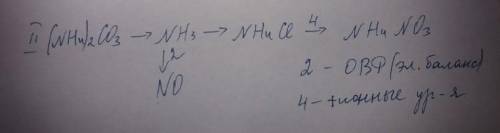 II (NH4)2CO3 → NH3 → NH4Cl 4→ NH4NO3
↓2
NO
2 - ОВР (эл. баланс)
4 - + ионные ур-я